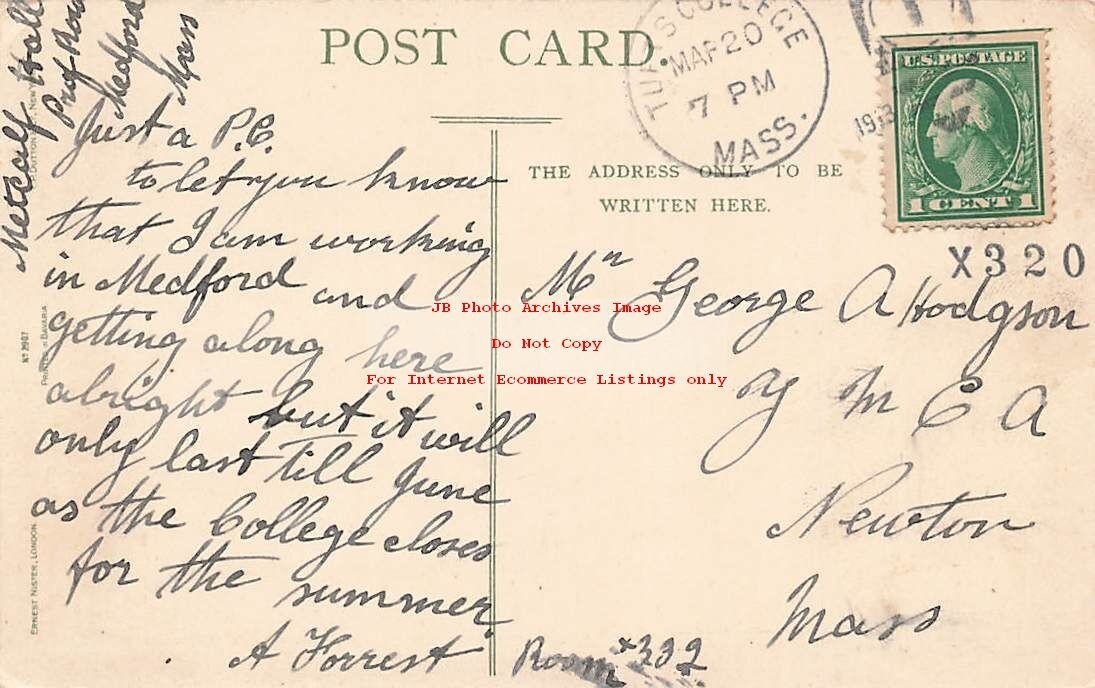 POST CARD.
TUFTS COLLEGE
MAR 20
7 PM
MASS.
1913
U.S. POSTAGE
1 CENT 1
X320
THE ADDRESS ONLY TO BE
WRITTEN HERE.
Metcalf Hall
Prof Row
Medford
Mass
Just a P.C.
to let you know
that I am working
in Medford and
getting along here
alright but it will
only last till June
as the College closes
for the summer
A Forrest
Mr George A Hodgson
Y M C A
Newton
Mass
Room 332
JB Photo Archives Image
Do Not Copy
For Internet Ecommerce Listings only
DUTTON NEW Y
PRINTED IN BAVARIA
No 2907
ERNEST NISTER, LONDON